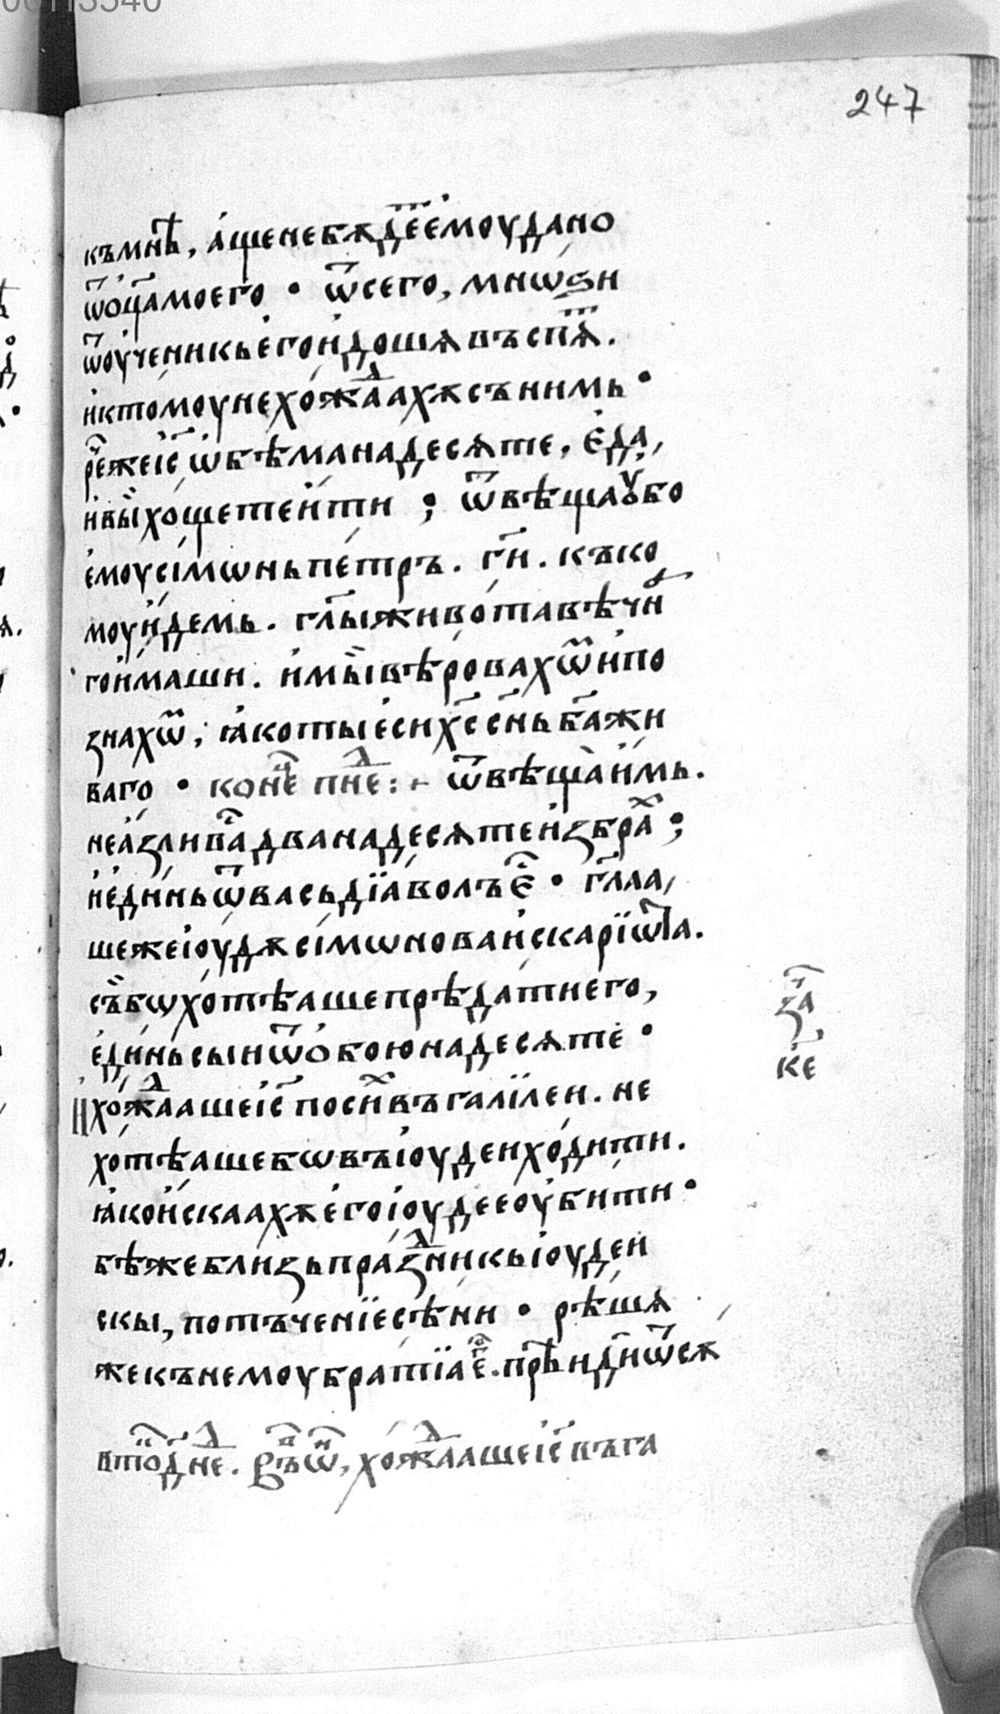 00113540
247
къмнѣ, а҆щенебѫде҆те҆моудано
ѿо҆ц҃амоего · ѿсего, мнѡѕи
ѿоу҆ченикье҆гои҆дошѧвъспѧт.
и҆ктомоунехо́ждаахѫсънимь ·
рече́жеі҆с҃ ѡ҆бѣманадесѧте, є҆да,
и҆вы̀хощетеи҆ти ; ѿвѣщаꙋбо
е҆моусі́мѡньпе́тръ. г҃и. къко
моуи҆демь. гл҃ыживо́тавѣчн
гои҆маши. и҆мы̀вѣровахѡми҆по
знахѡм, ꙗ҆котые҆сих҃с с҃нь б҃ажи
ваго · коне́ц пне҆д :⁓ ѿвѣщаи҆́мь.
неа҆́зливасдванадесѧтеи҆збрах ;
и҆е҆ди́ньѿвасьдїа́волъе҆с · гл҃аа,
шежеі҆оудѫсі́мѡноваи҆скарїѡ́та.
съ́бѡхотѣашепрѣдатиего,
е҆ди́ньсыиѿо҆боюнадесѧте ·
хо́ждаашеі҆с҃ посихвъгалїлеи. не
хотѣашебѡвъі҆оудеихо́дити.
ꙗ҆кои҆скаахѫе҆гоі҆оудееоу҆бити ·
бѣжеблизьпра́здникьі҆оудеи
скы, потъченїесѣни · рѣшѧ
жекънемоубратїаег҆о. прѣидиѿсѫ
зач
ке
втод не. ѻ҆нѡ, хо́ждаашеі҆с҃ въга